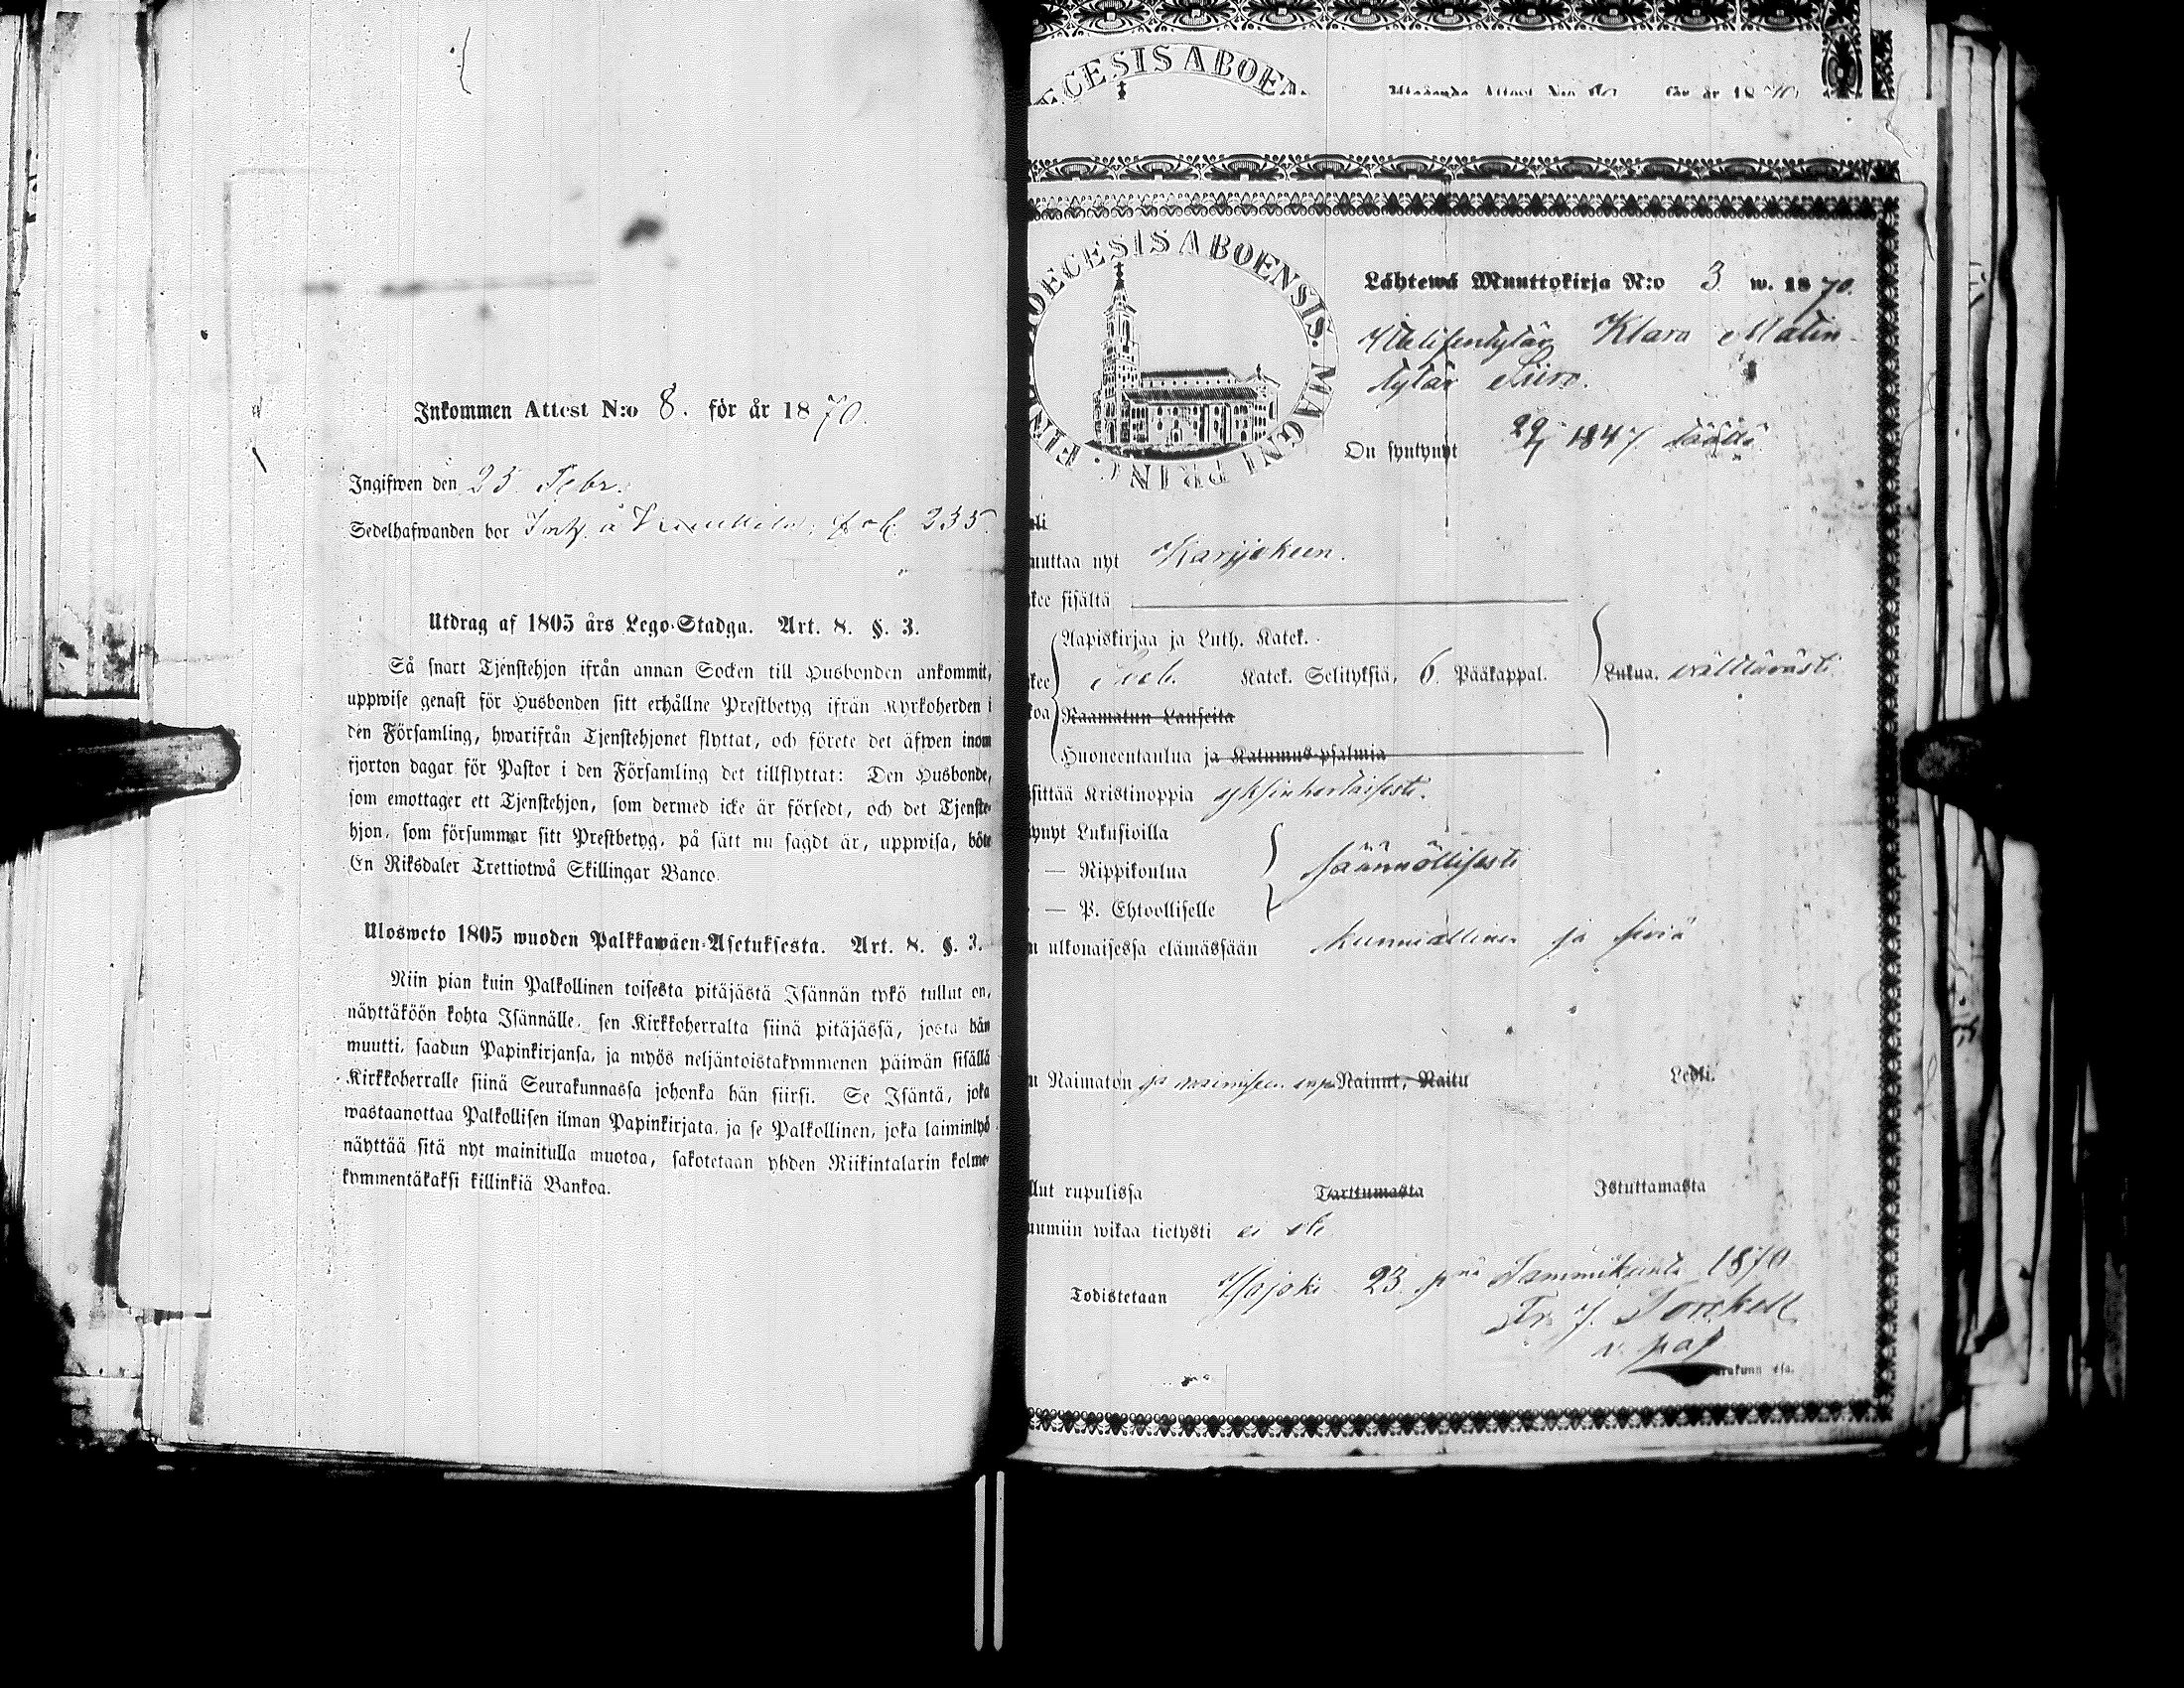 Inkommen Attest N:o 8. för år 1870.
Ingifwen den 23 Febr.
Sedelhafwanden bor Inh. å fol. 235
Utdrag af 1805 års Lego-Stadga. Art. 8. §. 3.
Så snart Tjenstehjon ifrån annan Socken till Husbonden ankommit,
uppwise genast för Husbonden sitt erhållne Prestbetyg ifrån Kyrkoherden i
den Församling, hwarifrån Tjenstehjonet flyttat, och förete det äfwen inom
fjorton dagar för Pastor i den Församling det tillflyttat: Den Husbonde,
som emottager ett Tjenstehjon, som dermed icke är försedt, och det Tjenste-
hjon, som försummar sitt Prestbetyg, på sätt nu sagdt är, uppwisa, böte
En Riksdaler Trettiotwå Skillingar Banco.
Ulosweto 1805 wuoden Palkkawäen-Asetuksesta. Art. 8. §. 3.
Niin pian kuin Palkollinen toisesta pitäjästä Isännän tykö tullut on,
näyttäköön kohta Isännälle, sen Kirkkoherralta siinä pitäjässä, josta hän
muutti, saadun Papinkirjansa, ja myös neljäntoistakymmenen päiwän sisällä
Kirkkoherralle siinä Seurakunnassa johonka hän siirsi. Se Isäntä, joka
wastaanottaa Palkollisen ilman Papinkirjata, ja se Palkollinen, joka laiminlyö
näyttää sitä nyt mainitulla muotoa, sakotetaan yhden Riikintalarin kolme-
kymmentäkaksi killinkiä Bankoa.
ECESIS ABOEN
Utgående Attest N:o för år 1870
DIOECESIS ABOENSIS. MAGNI PRINC. FINL.
Lähtewä Muuttokirja N:o 3 w. 1870.
Itsellisentytär Klara Matin-
tytär Siiro.
On syntynyt 1847 täällä
uli
uuttaa nyt Karijokeen.
kee sisältä
Aapiskirjaa ja Luth. Katek.
kee Katek. Selityksiä, 6 Pääkappal. Lukua. välttävästi
koa Raamatun Lauseita
Huoneentaulua ja Katumus-psalmia
sittää Kristinoppia yksinkertaisesti.
ynyt Lukusioilla
— Rippikoulua säännöllisesti
— P. Ehtoolliselle
n ulkonaisessa elämässään kunniallinen ja siviä
n Naimaton ja naimiseen Nainut, Naitu Leski.
llut rupulissa Tarttumasta Istuttamasta
uumiin wikaa tietysti ei ole
Todistetaan Isojoki 23 pnä Tammikuuta 1870
Fr. J. Forchell
v. pas
urakunn